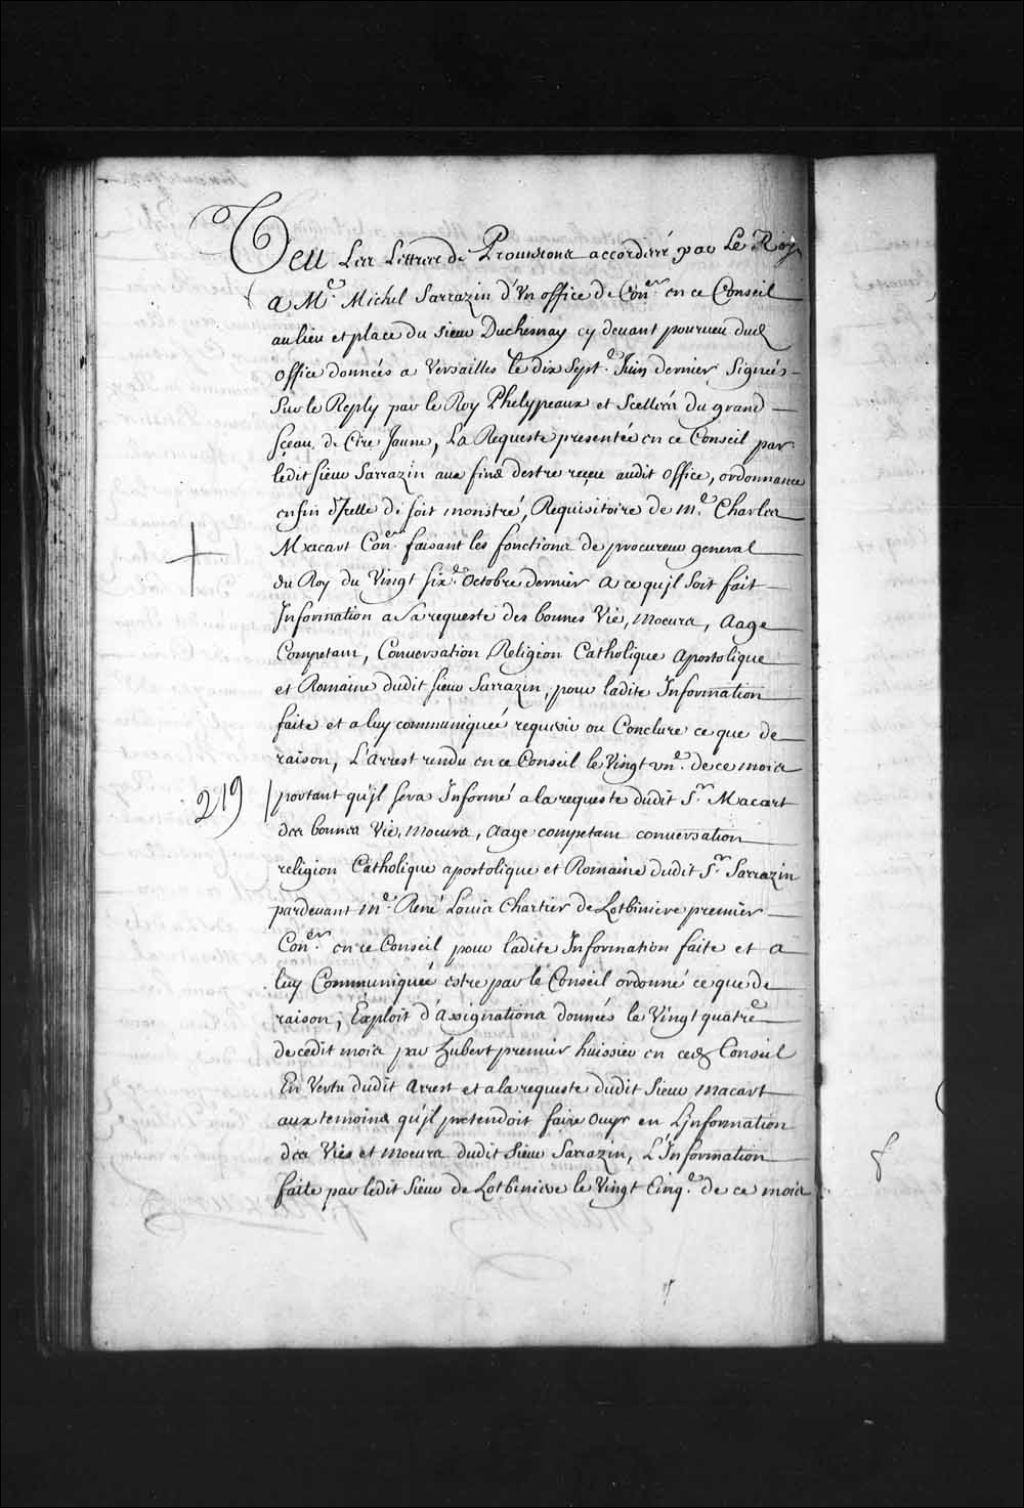 Veu Les Lettres de Prouisions accordeés par Le Roy
a Me. Michel Sarrazin d'Vn office de Coner. en ce Conseil
au lieu et place du sieur Duchesnay cy deuant pourueu dud
office données a Versailles le dix Septe. Juin dernier, Signeés
Sur le Reply par le Roy Phelypeaux et Scelleés du grand
Sceau de Cire Jaune, La Requeste presentée en ce Conseil par
ledit sieur Sarrazin aux fins destre receu audit office, ordonnance
enfin d'Icelle de soit monstré, Requisitoire de Me. Charles
Macart Coner. faisant les fonctions de procureur general
du Roy du Vingt sixe. Octobre dernier a ce qu'jl soit fait
Information a Sa requeste des bonnes Vie, Moeurs, aage
Competant, Conuersation Religion Catholique apostolique
et Romaine dudit sieur Sarrazin, pour ladite Information
faite et a luy communiqueé requerir ou Conclure ce que de
raison, L'arrest rendu en ce Conseil le Vingt vne. de ce mois
219 portant qu'jl sera Informé a la requeste dudit Sr. Macart
des bonnes Vie, Moeurs, aage competant conuersation
religion Catholique apostolique et Romaine dudit Sr. Sarrazin
pardeuant Me. René Louis Chartier de Lotbiniere premier
Coner. en ce Conseil pour ladite Information faite et a
luy Communiqueé estre par le Conseil ordonné ce que de
raison; Exploit d'assignations données le Vingt quatre
de cedit mois par hubert premier huissier en ced Conseil
En Vertu dudit arrest et a la requeste dudit sieur Macart
aux temoins qu'jl pretendoit faire ouyr en Ljnformation
des Vies et moeurs dudit sieur Sarrazin, L'Information
faite par ledit sieur de Lotbiniere le Vingt Cinqe. de ce mois